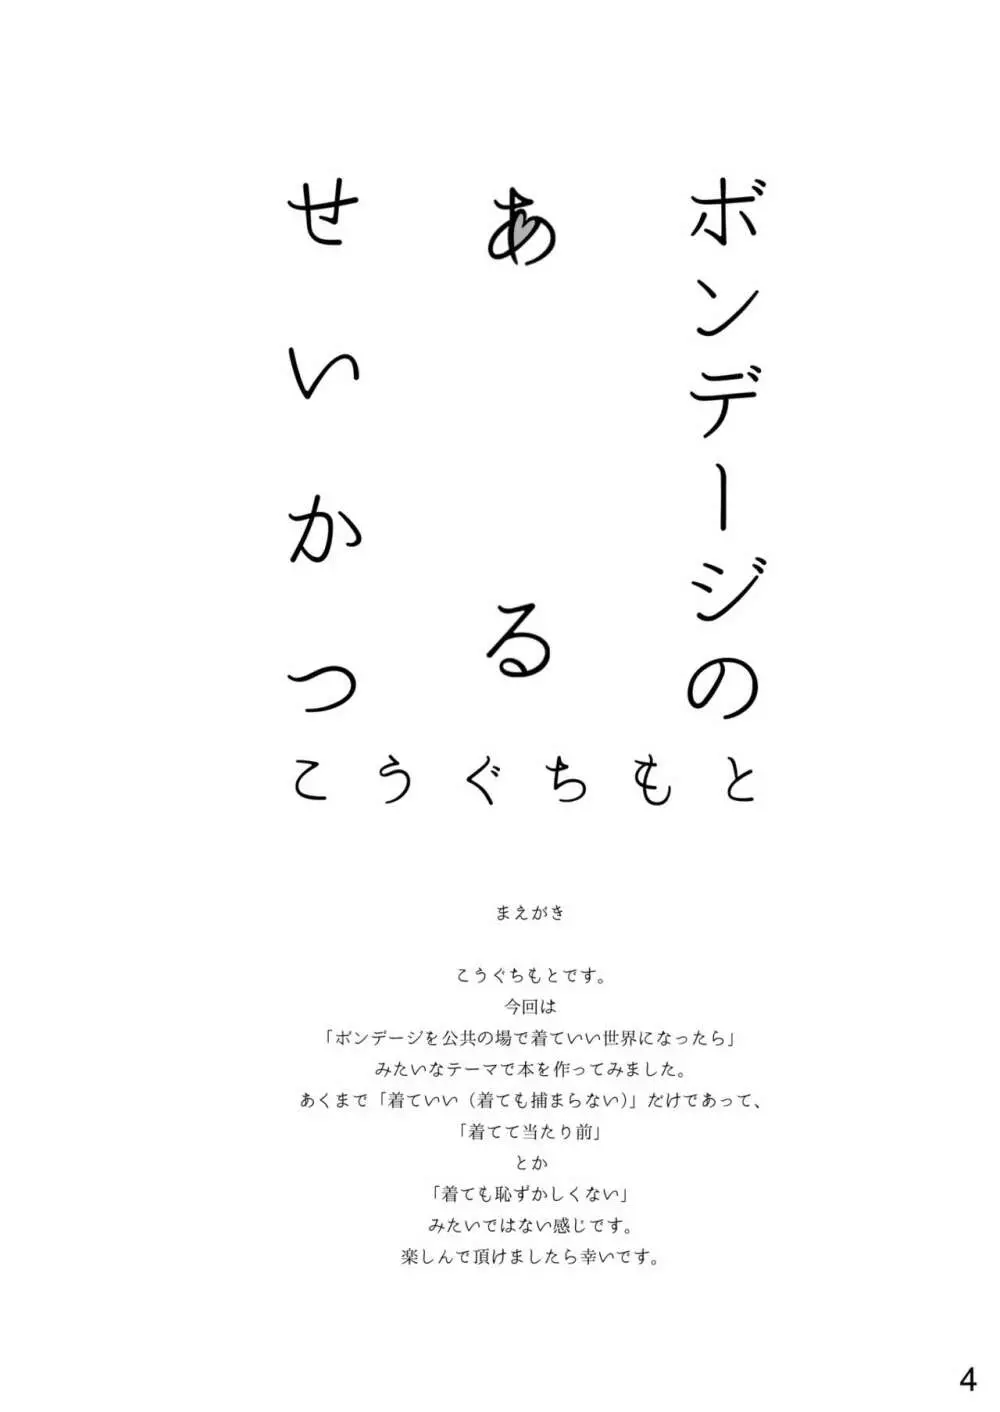 ボンデージの
ある
せいかつ
こうぐちもと
まえがき
こうぐちもとです。
今回は
「ボンデージを公共の場で着ていい世界になったら」
みたいなテーマで本を作ってみました。
あくまで「着ていい（着ても捕まらない）」だけであって、
「着てて当たり前」
とか
「着ても恥ずかしくない」
みたいではない感じです。
楽しんで頂けましたら幸いです。
4